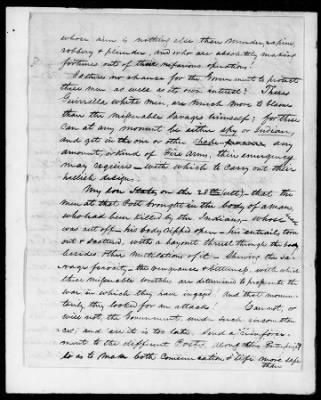 whose aim is nothing else than murder, rapine
robbery & plunder, and who are absolutely making
fortunes out of their nefarious operations!
Is there no chance for the Government to protect
these men as well as its own interest? These
Guerrilla white men, are much more to blame
than the miserable Savages himself; for they
can at any moment be either spy or Indian,
and get in the one or other any
amount, or kind of Fire Arms, their emergency
may require with which to carry out their
hellish design.
My son States, on the 28th (ult) that the
men at that Post brought in the body of a man
who had been killed by the Indians, whose
was cut off his body ripped open his entrails torn
out & scattered, with a bayonet thrust through the body
besides other mutilations of it. Showing the sa-
vage ferocity, the vengeance & bitterness, with which
these miserable wretches are determined to prosecute the
war in which they have engaged! And that momen-
tarily they looked for an attack! Cannot, or
will not, the Government send such
ere it is too late. Send a reinforce-
ment to the different Posts, along this
so as to make both Communication & life more safe
than